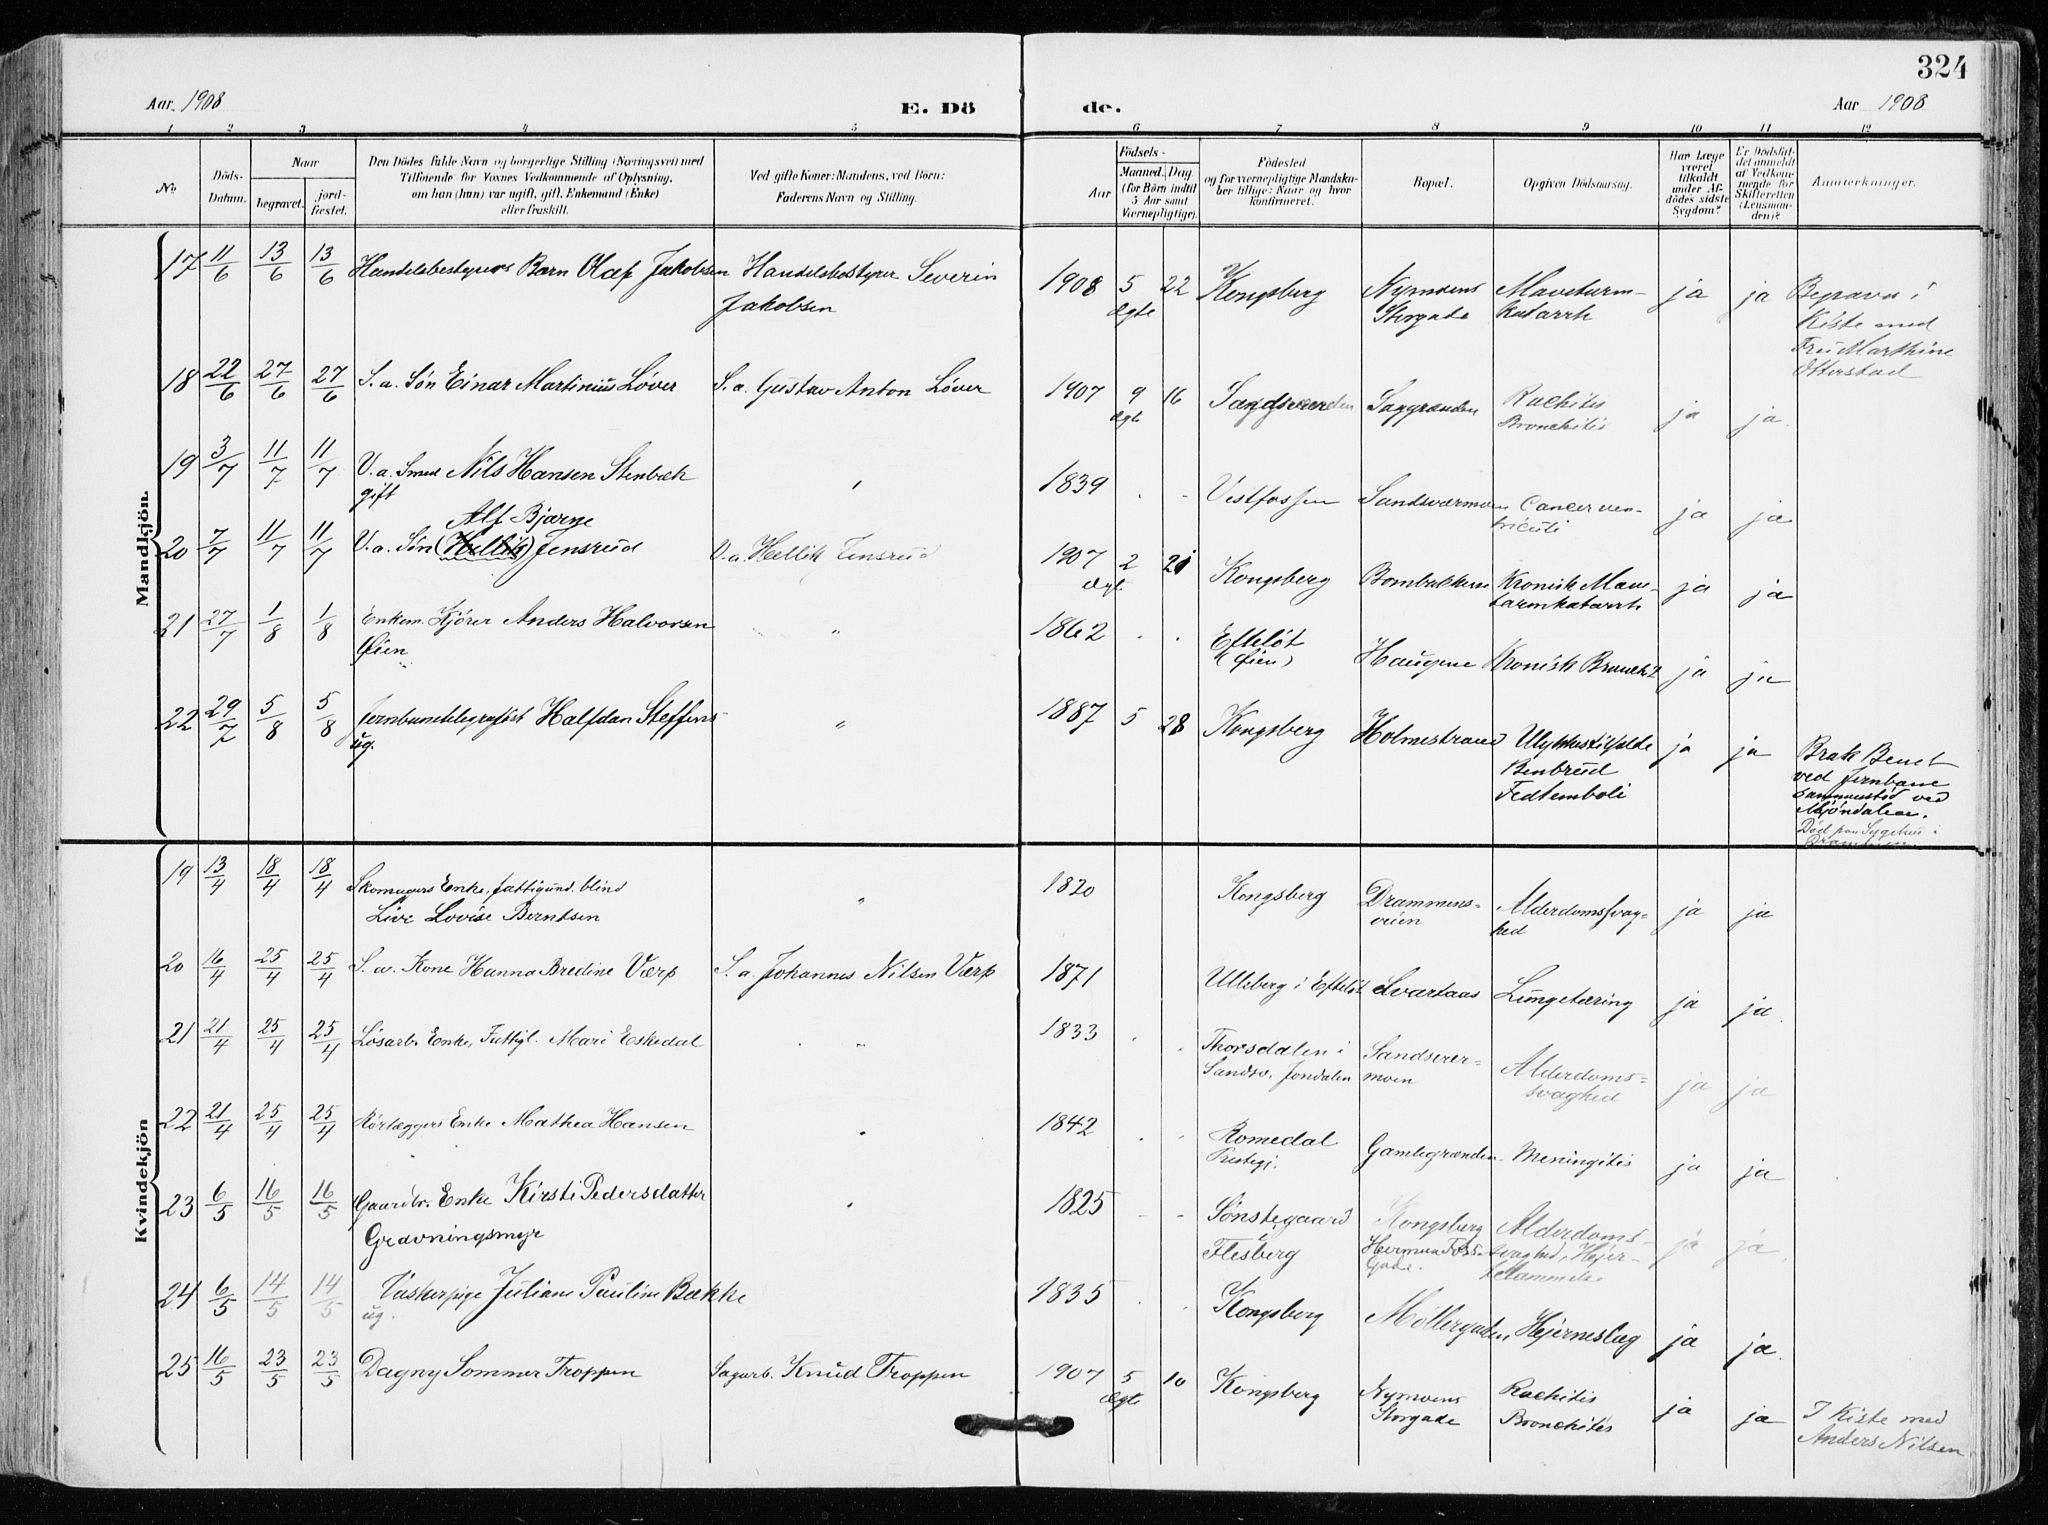 324
Aar 1908 E. Dö de. Aar 1908
1 2 3 4 5 6 7 8 9 10 11 12
No
Döds-Datum.
Naar
begravet. jord-fæstet.
Den Dödes fulde Navn og borgerlige Stilling (Næringsvei) med
Tilföiende for Voxnes Vedkommende af Oplysning,
om han (hun) var ugift, gift, Enkemand (Enke)
eller fraskilt.
Ved gifte Koner: Mandens, ved Börn:
Faderens Navn og Stilling.
Födsels-
Aar
Maaned. Dag.
(for Börn indtil
5 Aar samt
Værnepligtige).
Födested
og for værnepligtige Mandska-
ber tillige: Naar og hvor
konfirmeret.
Bopæl.
Opgiven Dödsaarsag.
Har Læge
været
tilkaldt
under Af-
dödes sidste
Sygdom?
Er Dödsfal-
det anmeldt
af Vedkom-
mende for
Skifteretten
(Lensman-
den)?
Anmærkninger.
Mandkjön.
17 11/6 13/6 13/6 Handelsbestyrers Barn Olaf Jakobsen Handelsbestyrer Severin
Jakobsen
1908 5 22 Kongsberg Nymoens Mavetarm- ja ja Begravet i
ægte Storgade katarrh Kiste med
Fru Marthine
Otterstad
18 22/6 27/6 27/6 S.a. Søn Einar Martinius Løver S.a. Gustav Anton Løver
1907 9 16 Sandsværden Saggrænden Rachitis ja ja.
ægte Bronchitis
19 3/7 11/7 11/7 V.a. Smed Nils Hansen Stenbæk
gift
1839 Vestfossen Sandsværmoen Cancer ven- ja ja
triculi
Alf Bjarne
20 7/7 11/7 11/7 V.a. Søn (Hellik) Jensrud V.a. Hellik Jensrud
1907 2 21 Kongsberg Bombakkene Kronisk Mave- ja ja
ægt. tarmkatarrh
21 27/7 1/8 1/8 Enkem. Kjører Anders Halvorsen "
Øien
1862 Efteløt Haugene Kronisk Bronchit ja ja
(Øien)
22 29/7 5/8 5/8 Jernbanetelegrafist Halfdan Steffens- "
ug.
1887 5 28 Kongsberg Holmestrand Ulykkestilfælde ja ja Brak Benet
Benbrud ved Jernbane
Fedtemboli sammenstød ved
Mjøndalen.
Død paa Sygehus i
Kvindekjön
19 13/4 18/4 18/4 Skomagers Enke, fattigund. blind "
Live Lovise Berntsen
1820 Kongsberg Drammens- Alderdomssvag- ja ja
veien hed
20 16/4 25/4 25/4 S.a. Kone Hanna Bredine Værp S.a. Johannes Nilsen Værp
1871 Ulleberg i Efteløt Svartaas Lungetæring ja ja
21 21/4 25/4 25/4 Løsarb. Enke, Fattigl. Mari Eskedal "
1833 Thorsdalen i Sandsvær- Alderdoms- ja ja
Sandsv. Jondalen moen svaghed
22 21/4 25/4 25/4 Rørlæggers Enke Mathea Hansen
1842 Romedal Gamlegrænden Meningitis ja ja
Prestegj.
23 6/5 16/5 16/5 Gaardbr. Enke Kirsti Pedersdatter
Gravningsmyr
1825 Sønstegaard Kongsberg Alderdoms- ja ja
Flesberg Herman Foss svaghed, Hjer-
Gade. telammelse
24 6/5 14/5 14/5 Vaskerpige Juliane Pauline Bække
ug.
1835 Kongsberg Møllergaden Hjerneslag ja ja
25 16/5 23/5 23/5 Dagny Sommer Troppen Sagarb. Knud Troppen
1907 5 10 Kongsberg Nymoens Rachitis ja ja I Kiste med
ægte Storgade Bronchitis Anders Nilsen